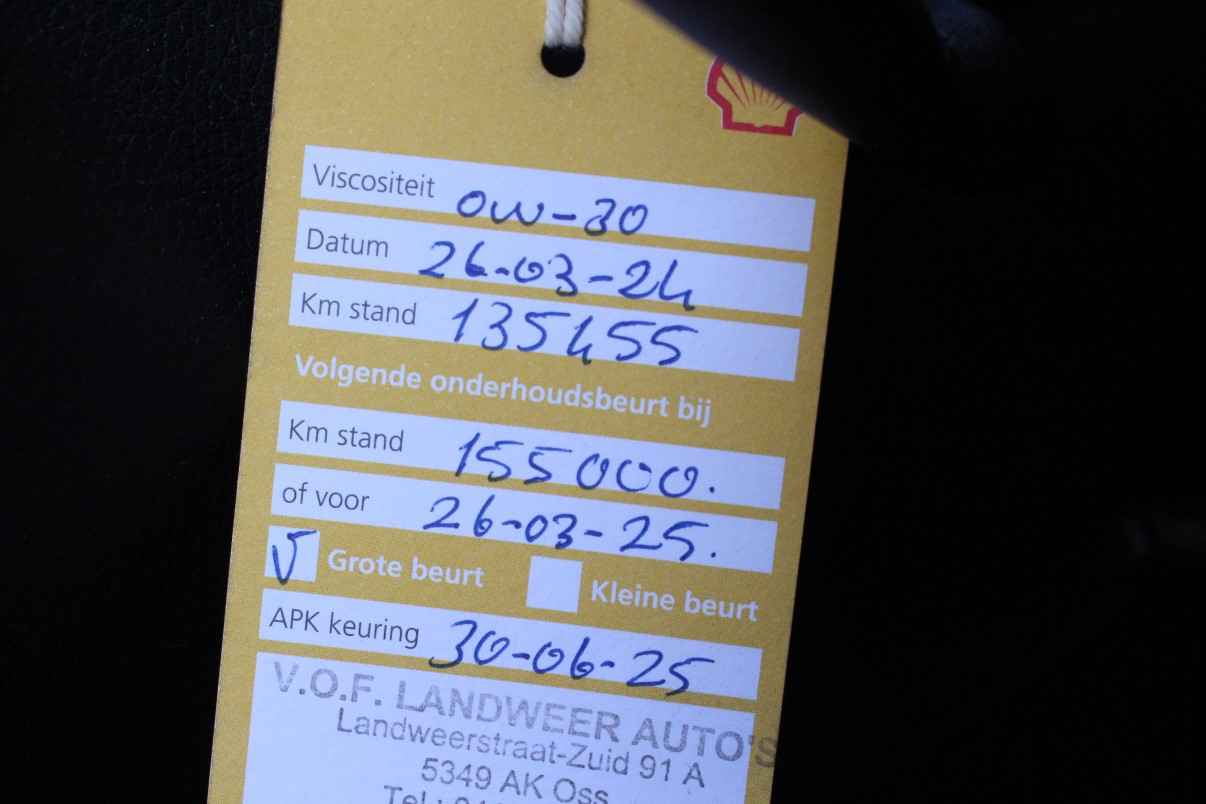 Viscositeit 0W-30
Datum 26-03-24
Km stand 135455
Volgende onderhoudsbeurt bij
Km stand 155000.
of voor 26-03-25.
V Grote beurt Kleine beurt
APK keuring 30-06-25
V.O.F. LANDWEER AUTO'S
Landweerstraat-Zuid 91 A
5349 AK Oss
Tel.: